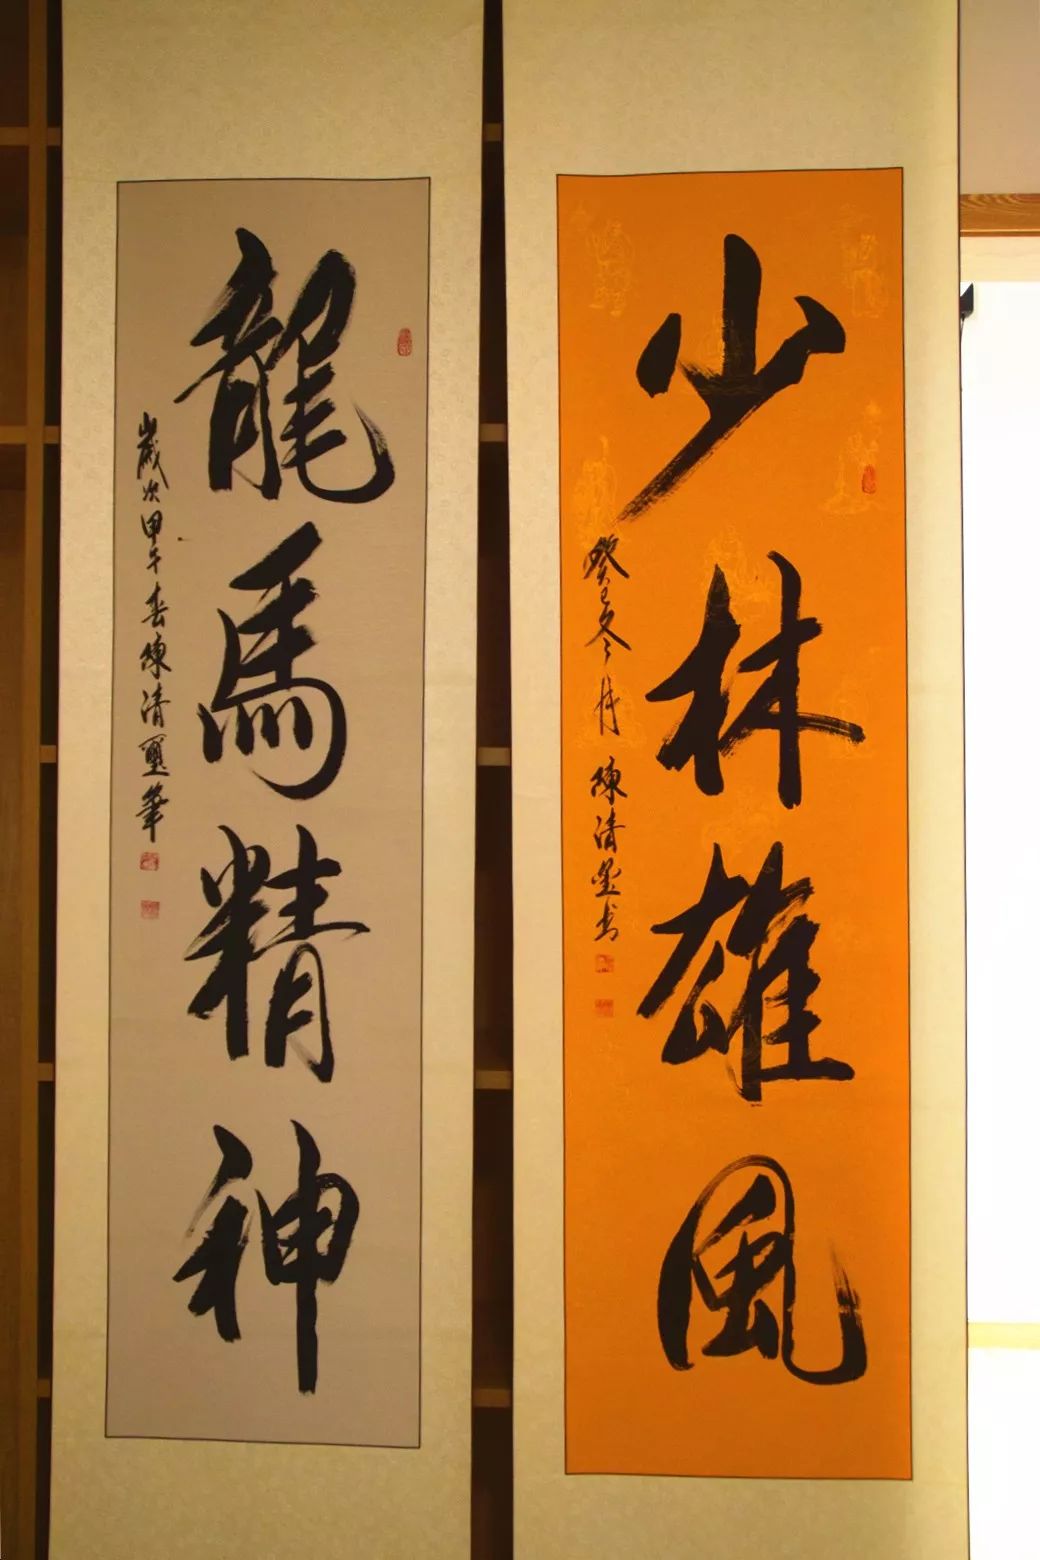 少林雄風
癸巳冬月 陳清墨书
龍馬精神
歲次甲午春陳清墨筆